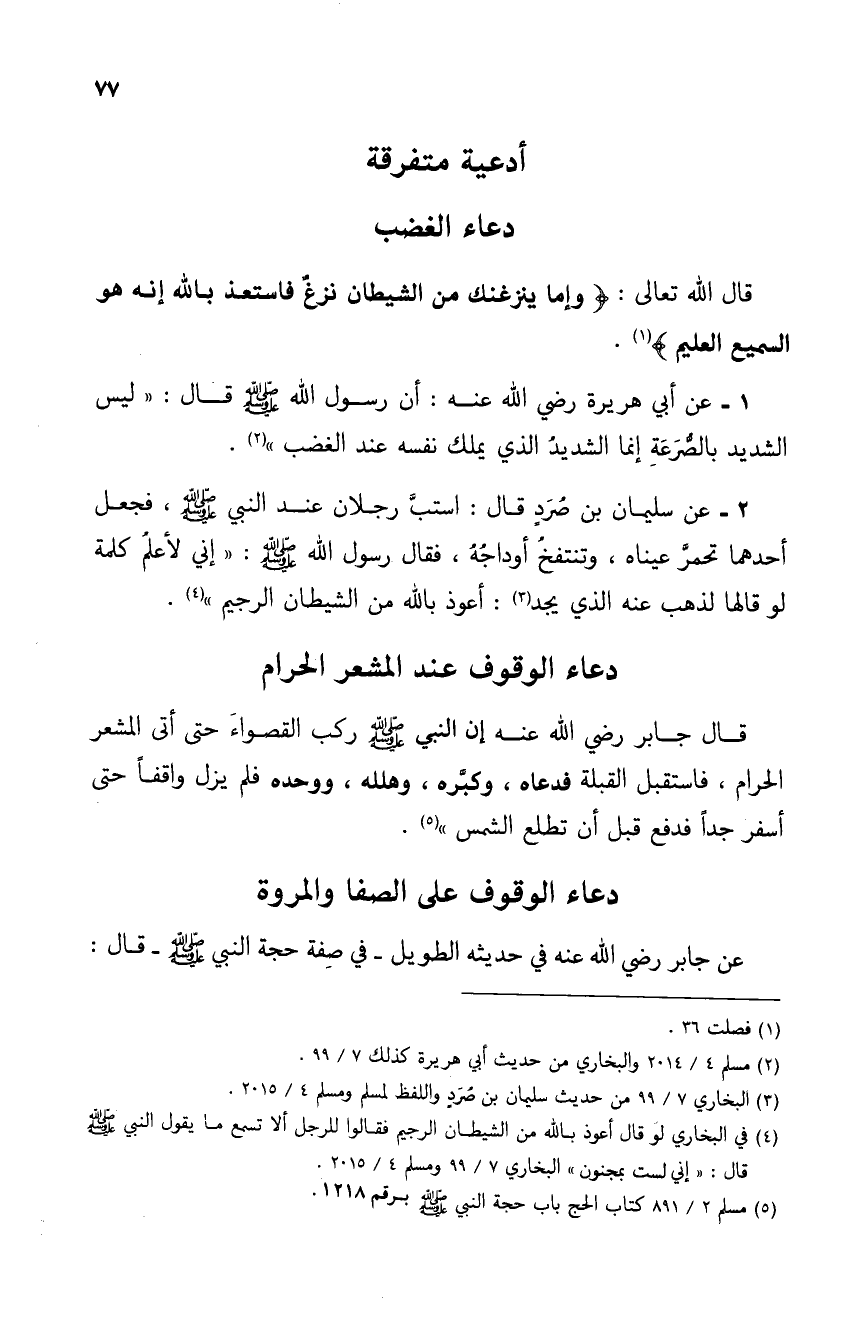 ٧٧
أدعية متفرقة
دعاء الغضب
قال الله تعالى : ﴿ وإما ينزغنك من الشيطان نزغٌ فاستعذ بـالله إنـه هو
السميع العليم ﴾(١) .
١ ـ عن أبي هريرة رضي الله عنـه : أن رسـول الله ﷺ قـال : « ليس
الشديد بالصُّرَعَةِ إنما الشديدُ الذي يملك نفسه عند الغضب »(٢) .
٢ ـ عن سليمـان بن صُرَدٍ قـال : استبَّ رجـلان عنـد النبي ﷺ ، فجعـل
أحدهما تحمرَّ عيناه ، وتنتفخُ أوداجُهُ ، فقال رسول الله ﷺ : « إني لأعلمُ كلمة
لو قالها لذهب عنه الذي يجد(٣) : أعوذ بالله من الشيطان الرجيم »(٤) .
دعاء الوقوف عند المشعر الحرام
قـال جـابر رضي الله عنـه إن النبي ﷺ ركب القصـواءَ حتى أتى المشعر
الحرام ، فاستقبل القبلة فدعاه ، وكبَّره ، وهلله ، ووحده فلم يزل واقفـاً حتى
أسفر جداً فدفع قبل أن تطلع الشمس »(٥) .
دعاء الوقوف على الصفا والمروة
عن جابر رضي الله عنه في حديثه الطويل ـ في صِفة حجة النبي ﷺ ـ قـال :
(١) فصلت ٣٦ .
(٢) مسلم ٤ / ٢٠١٤ والبخاري من حديث أبي هريرة كذلك ٧ / ٩٩ .
(٣) البخاري ٧ / ٩٩ من حديث سليمان بن صُرَدٍ واللفظ لمسلم ومسلم ٤ / ٢٠١٥ .
(٤) في البخاري لوَ قال أعوذ بـالله من الشيطـان الرجيم فقـالوا للرجل ألا تسمع مـا يقول النبي ﷺ
قال : « إني لست بمجنون » البخاري ٧ / ٩٩ ومسلم ٤ / ٢٠١٥ .
(٥) مسلم ٢ / ٨٩١ كتاب الحج باب حجة النبي ﷺ بـرقم ١٢١٨ .